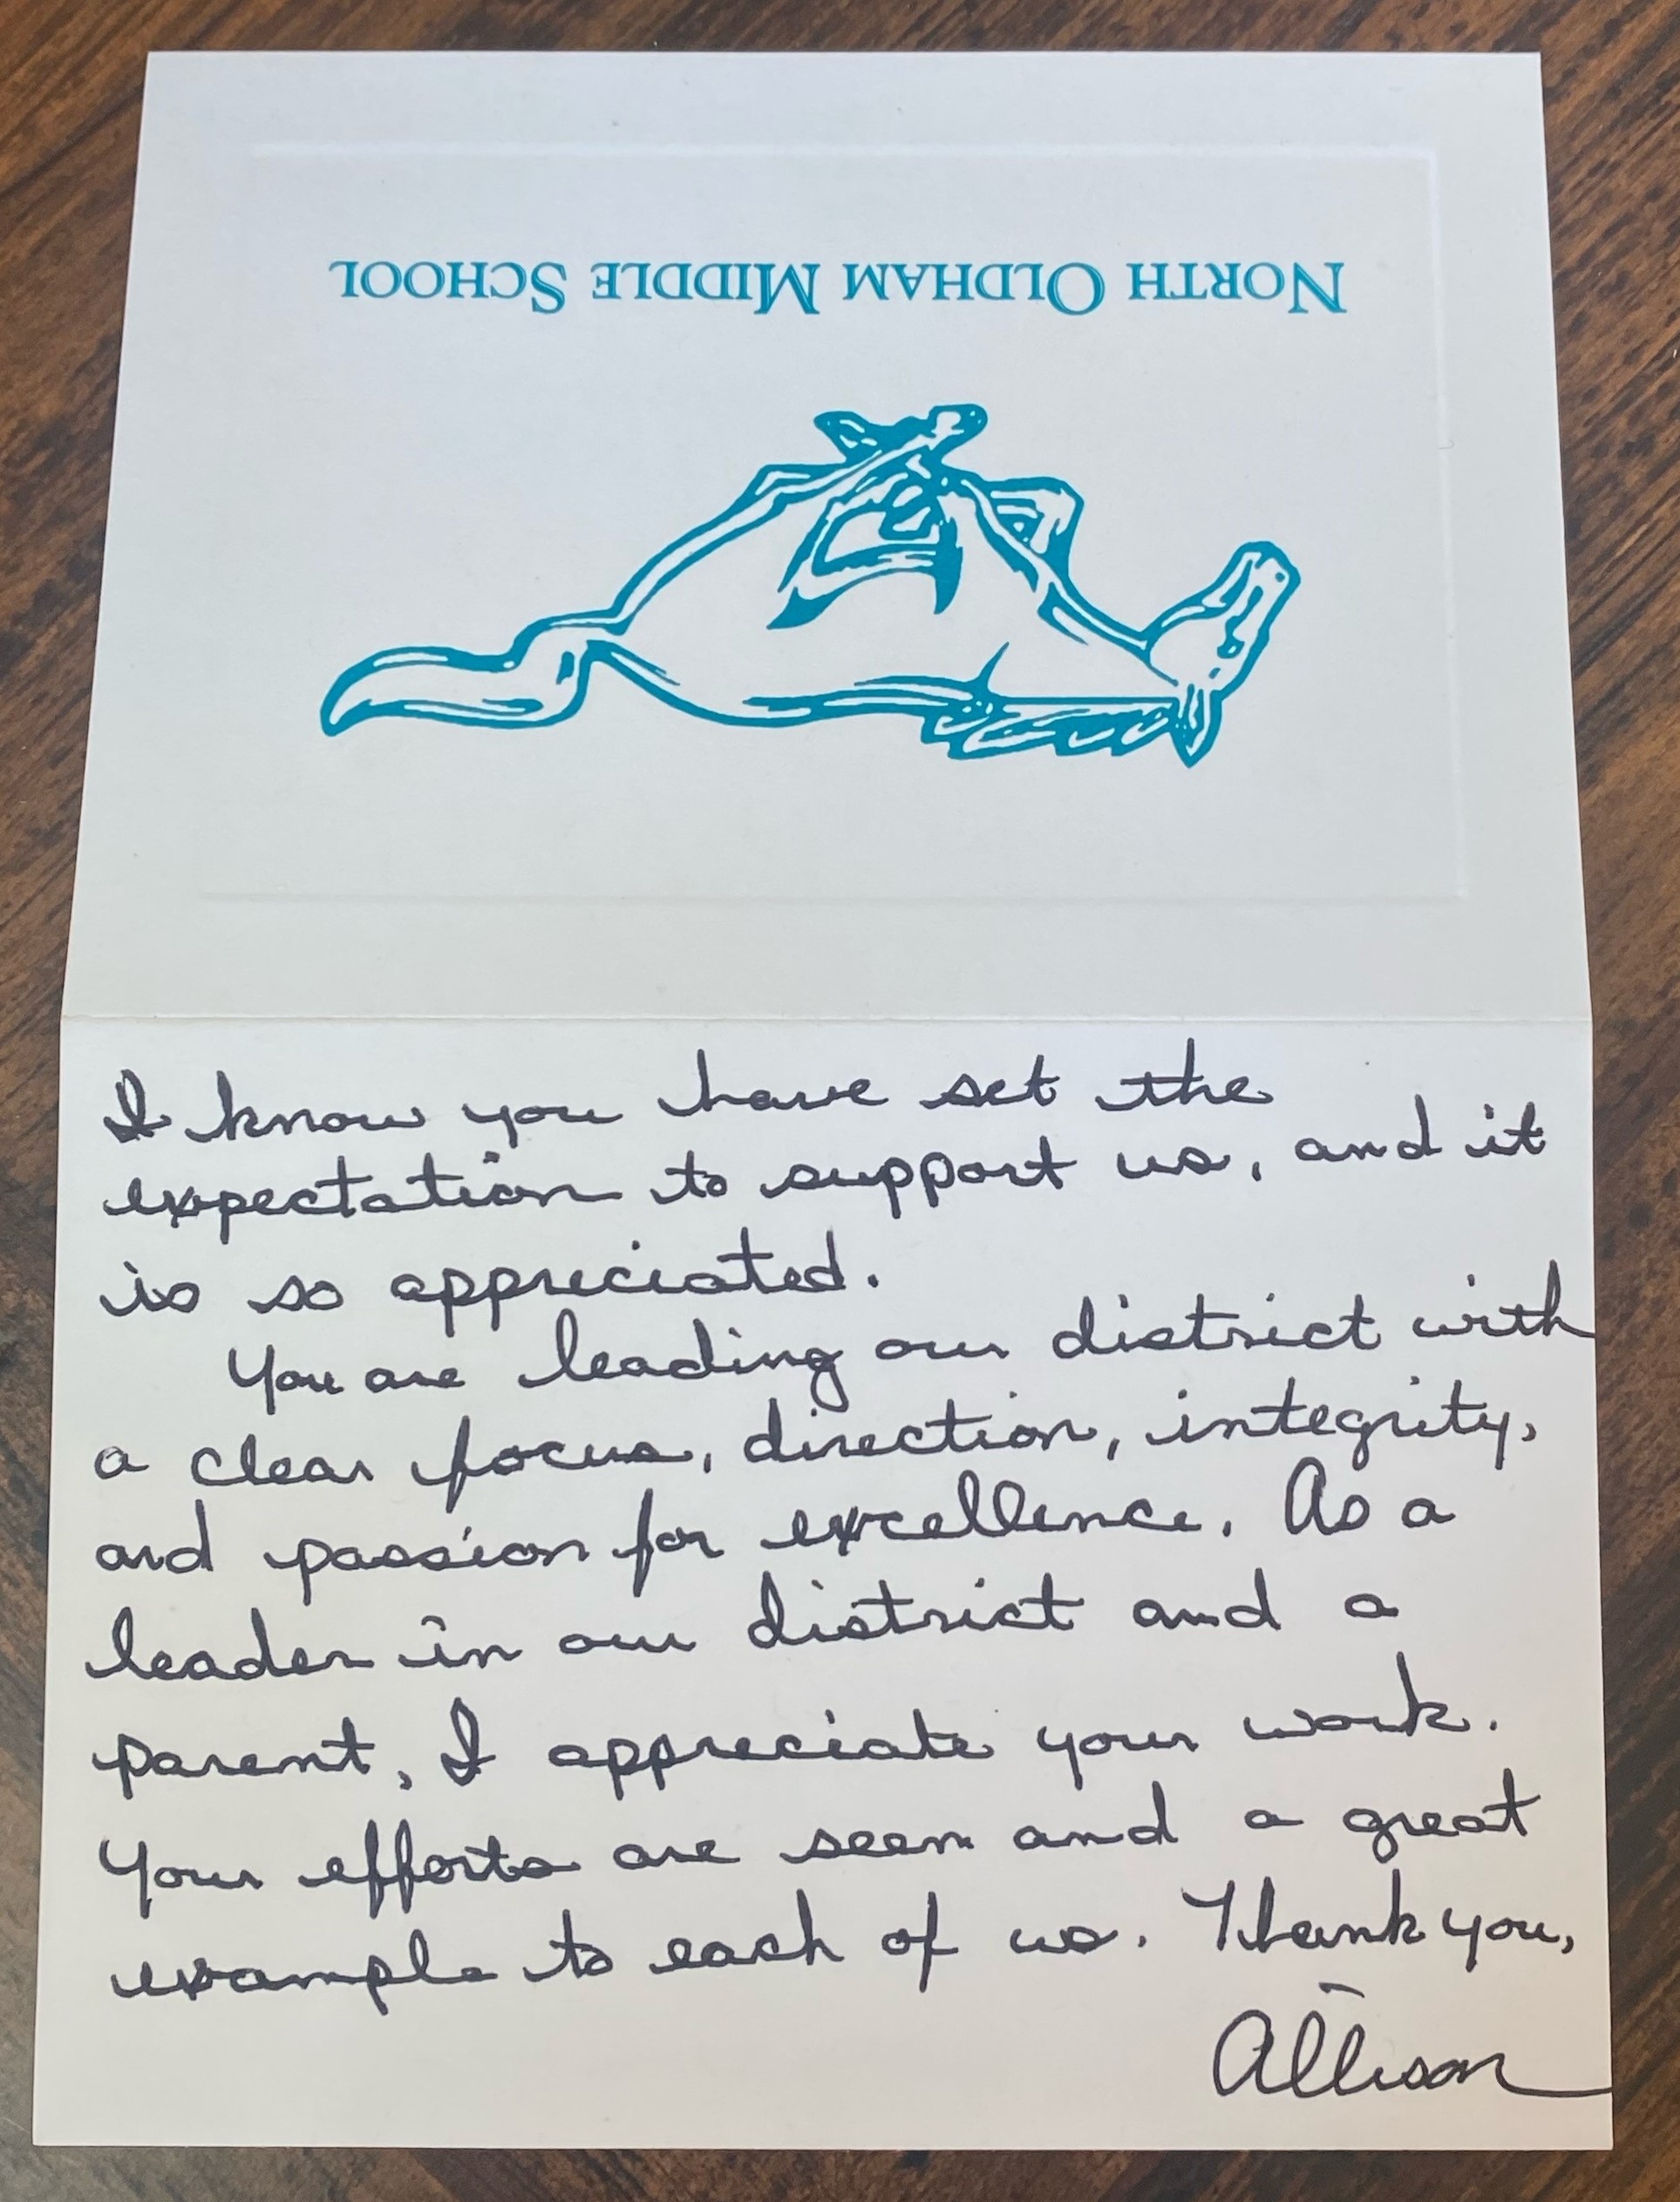 NORTH OLDHAM MIDDLE SCHOOL
I know you have set the
expectation to support us, and it
is so appreciated.
You are leading our district with
a clear focus, direction, integrity,
and passion for excellence. As a
leader in our district and a
parent, I appreciate your work.
Your efforts are seen and a great
example to each of us. Thank you,
Allison